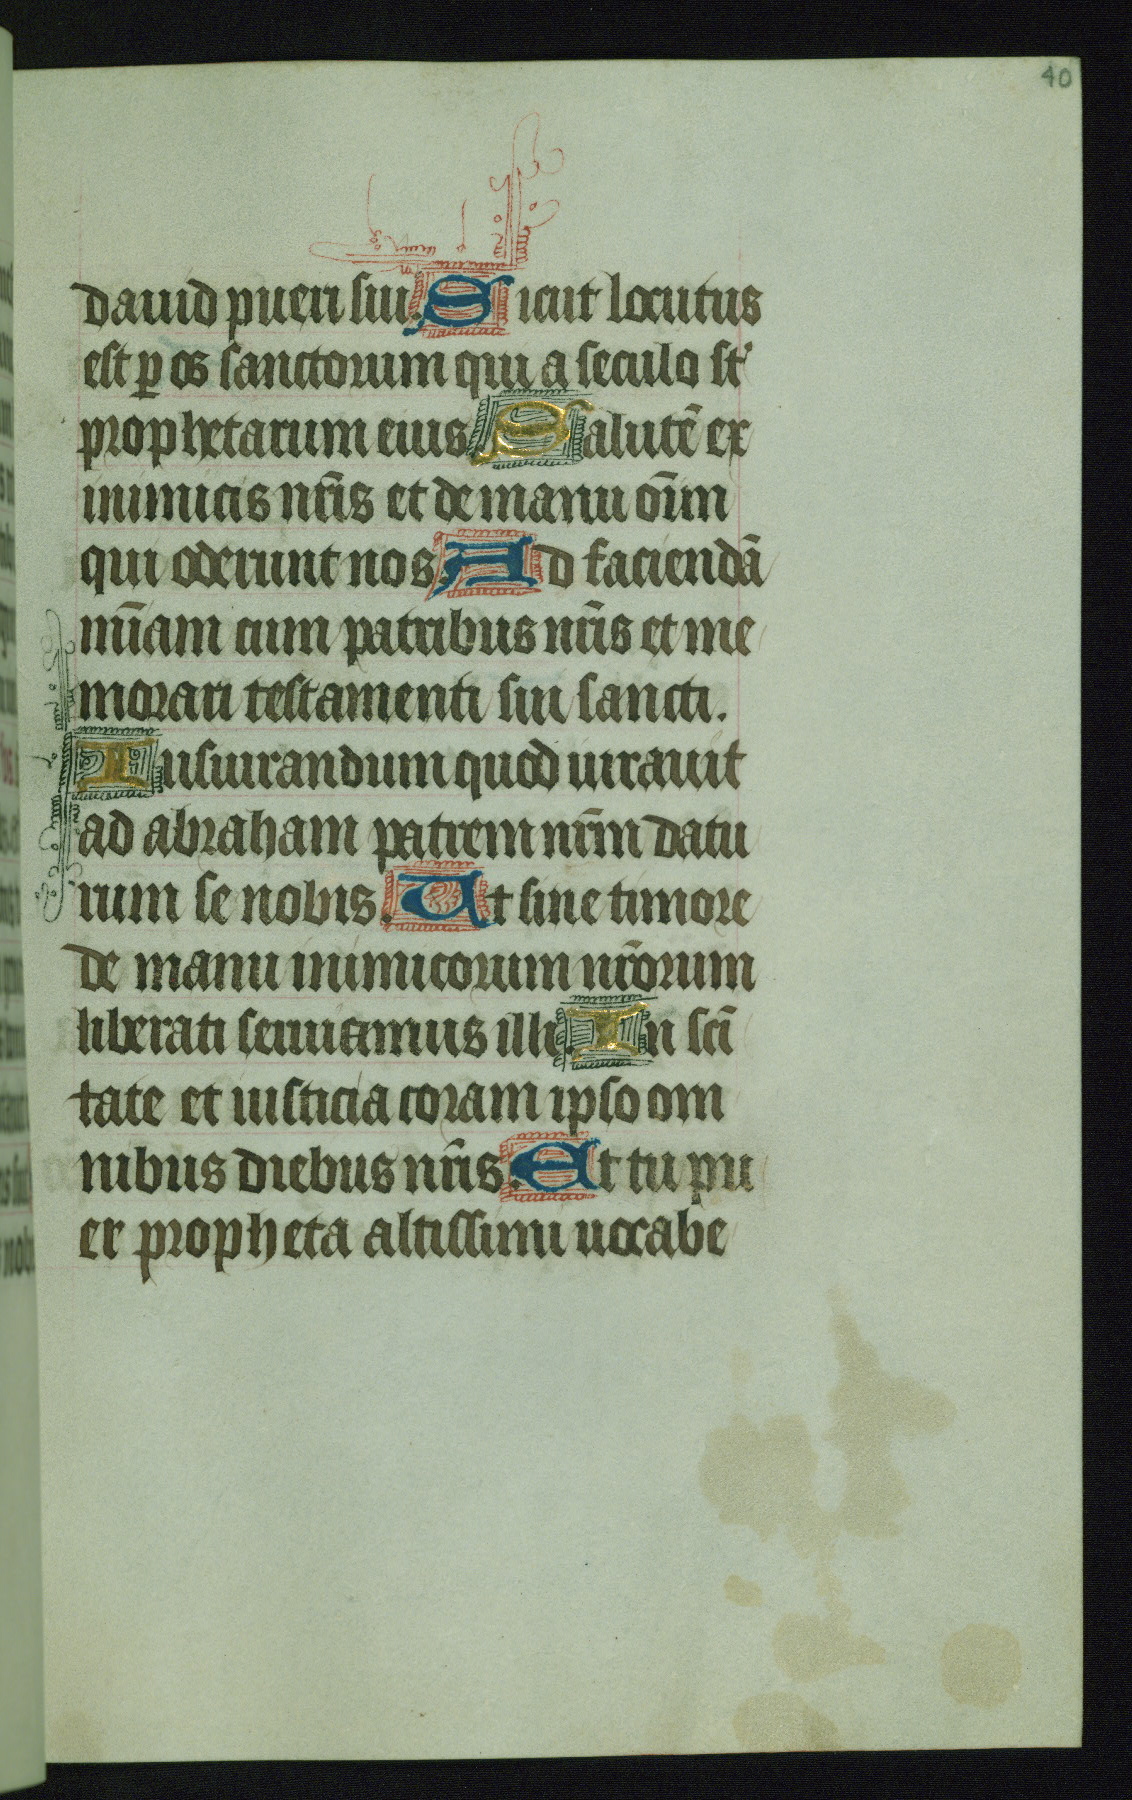 40
dauid pueri sui. Sicut locutus
est ꝑ os sanctorum qui a seculo st̄
prophetarum eius. Salutē ex
inimicis nr̄is et de manu oīm
qui oderunt nos. Ad faciendā
mīam cum patribus nr̄is et me
morari testamenti sui sancti.
Iusiurandum quod iurauit
ad abraham patrem nr̄m datu
rum se nobis. Ut sine timore
de manu inimicorum nr̄orum
liberati seruiamus illi. In scī
tate et iusticia coram ipso om
nibus diebus nr̄is. Et tu pu
er propheta altissimi uocabe